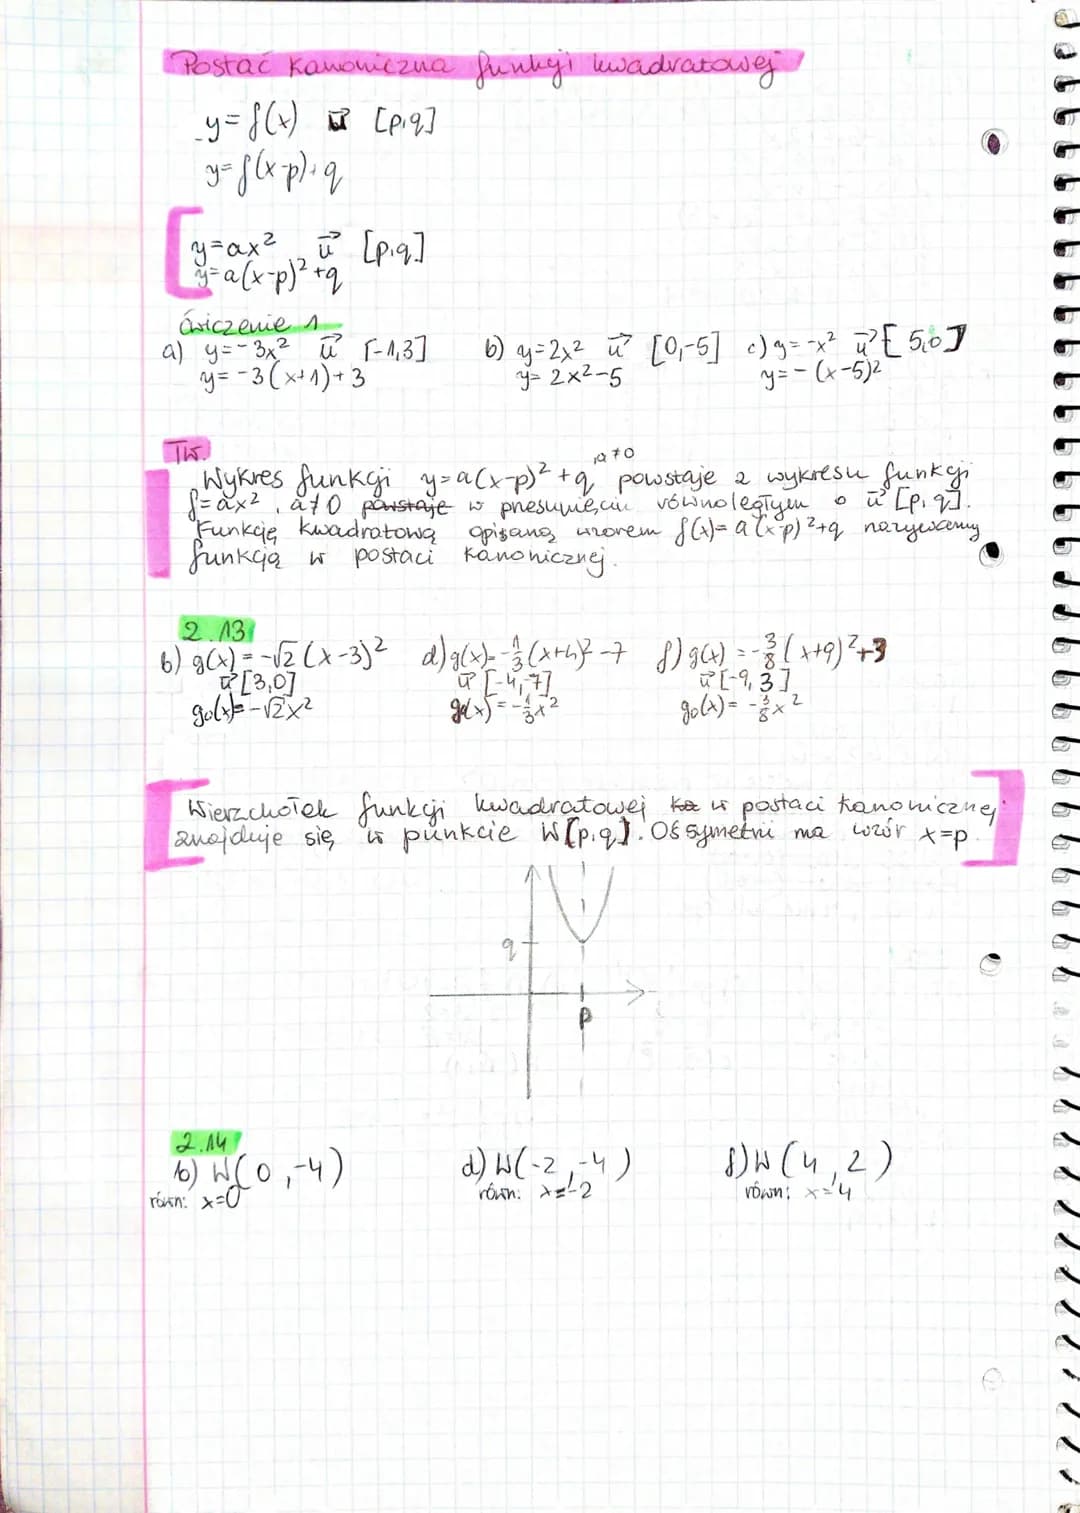 Postać kanoniczna funkcji kwadratowej
y=f(x) u⃗ [p,q]
y=f(x-p)+q
y=ax² u⃗ [p,q]
y=a(x-p)²+q
ćwiczenie 1
a) y=-3x² u⃗ [-1,3] b) y=2x² u⃗ [0,-5] c) y=-x² u⃗ [5,0]
y=-3(x+1)+3 y=2x²-5 y=-(x-5)2
Tw.
Wykres funkcji y=a(x-p)²+q ,a≠0 powstaje z wykresu funkcji
f=ax², a≠0 powstaje w przesunięciu równoległym o u⃗ [p,q].
Funkcję kwadratową opisaną wzorem f(x)=a(x-p)²+q nazywamy
funkcją w postaci kanonicznej.
2.13
b) g(x)=-√2(x-3)² d) g(x)=-1/3(x+4)²-7 f) g(x)=-3/8(x+9)²+3
u⃗ [3,0] u⃗ [-4,-7] u⃗ [-9,3]
g₀(x)=-√2x² g₀(x)=-1/3x² g₀(x)=-3/8x²
Wierzchołek funkcji kwadratowej w postaci kanonicznej
znajduje się w punkcie W[p,q]. Oś symetrii ma wzór x=p.
q
p
2.14
b) W(0,-4) d) W(-2,-4) f) W(4,2)
równ: x=0 równ: x=-2 równ: x=4